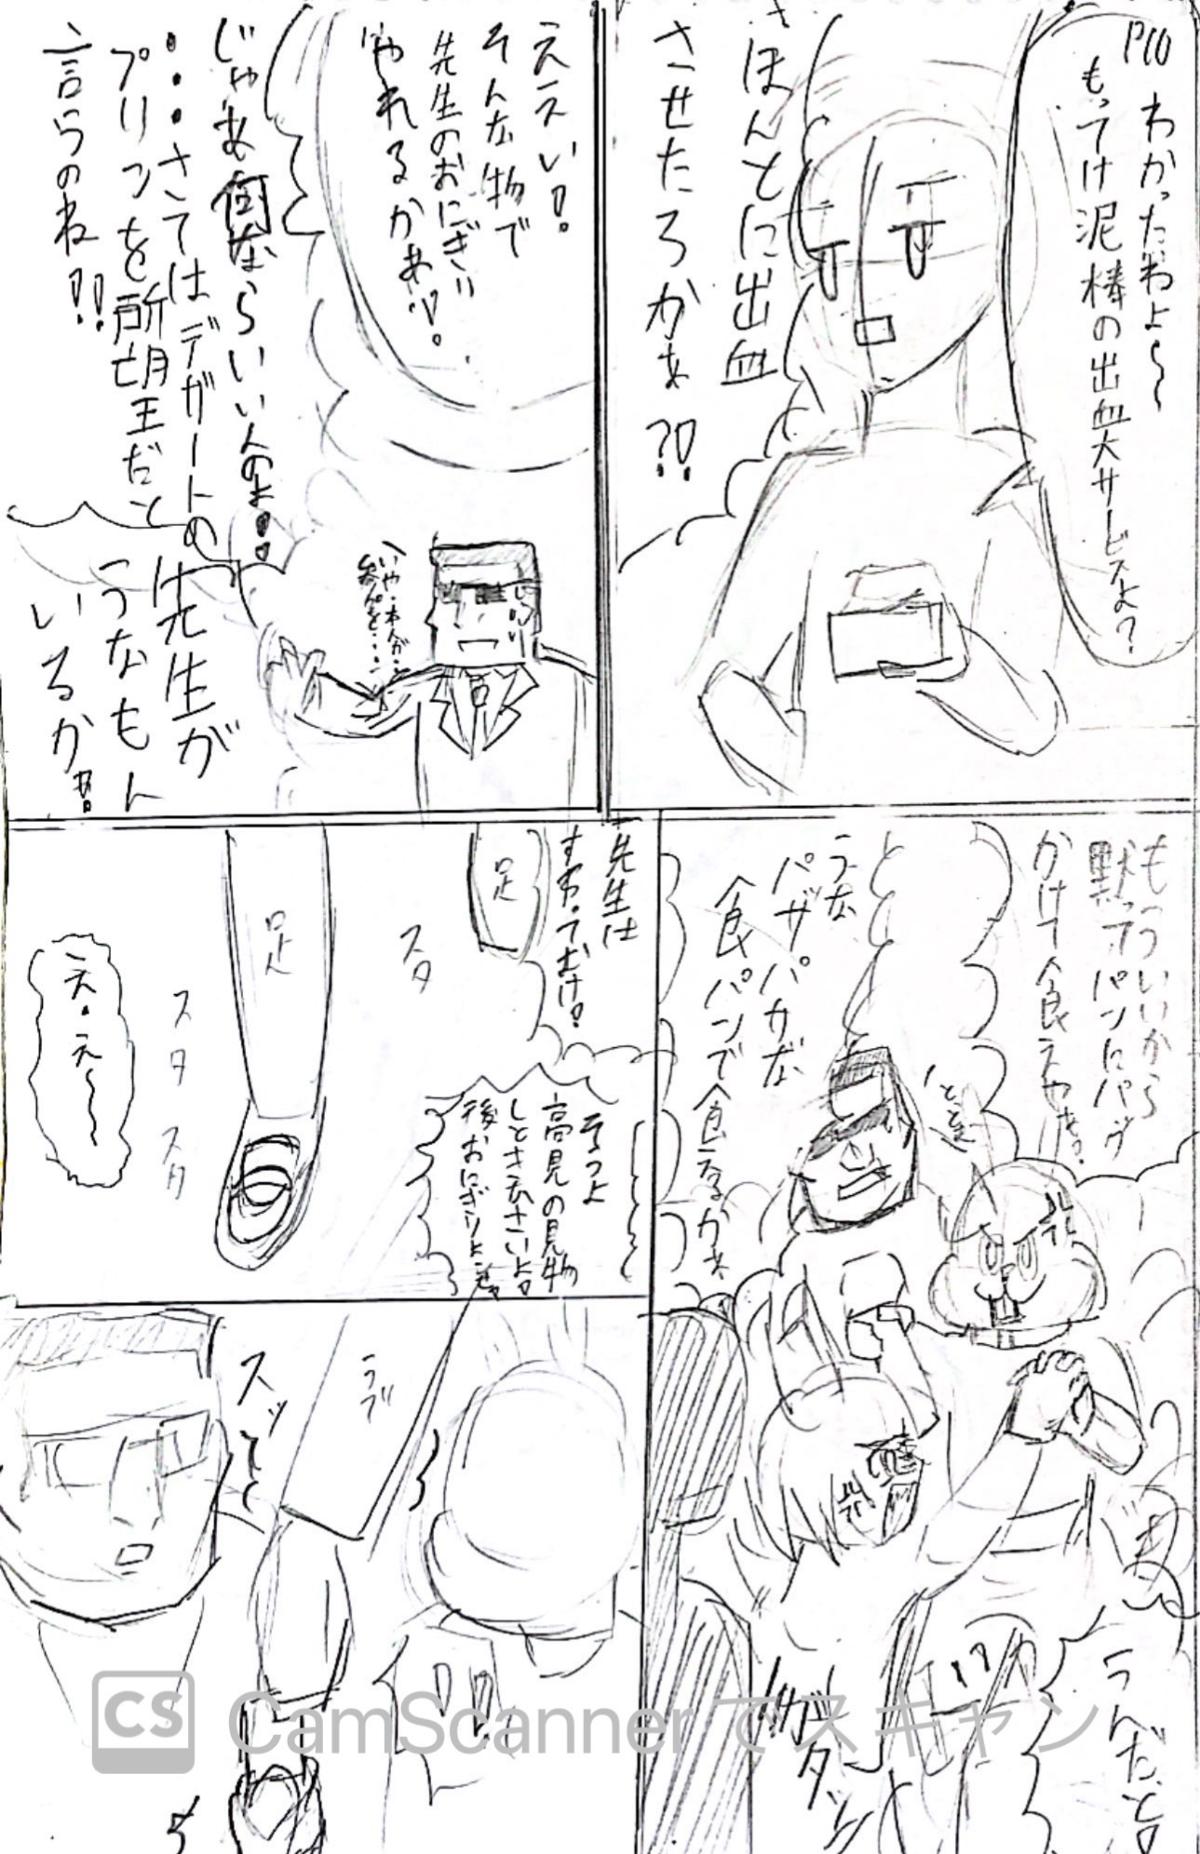 P10
わかったわよ〜〜
もってけ泥棒の出血大サービスよ?
ほんとに出血
させたろかぁ?!?
ええい!
そんな物で
先生のおにぎり
やれるかぁ!!
じゃあ何ならいいんのよ!!
・・・さてはデザートの
プリンを所望王だと
言うのね!!
いや・本人が・
先生が
うなもん
いるか!!
もういいから
黙ってパンにパヴ
かけて食えやぁっ
うな
パサパサな
食パンで食えるかぁ
うんだと
ガタッ
先生は
すわっておけ!
足
スタ
足
スタ
スタ
そうよ
高見の見物
しときなさいよ!
え・え〜〜
スッ
ラブ
!?
CS CamScanner でスキャン